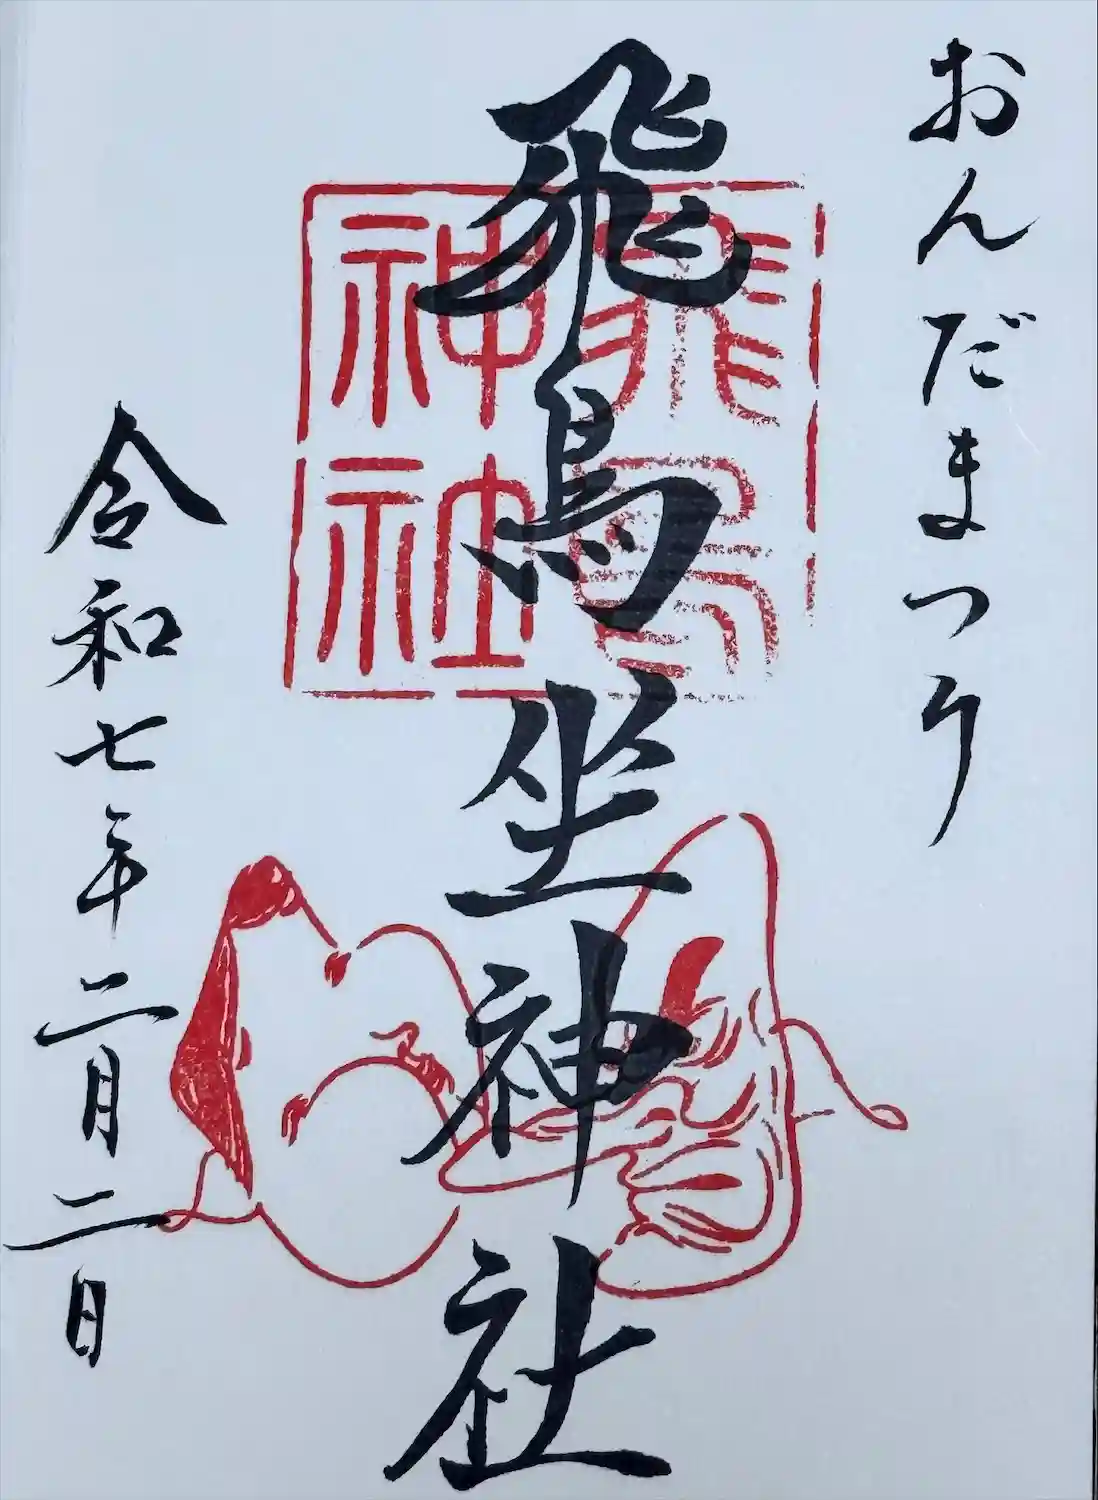 おんだまつり
飛鳥坐神社
令和七年二月二日
飛鳥
神社